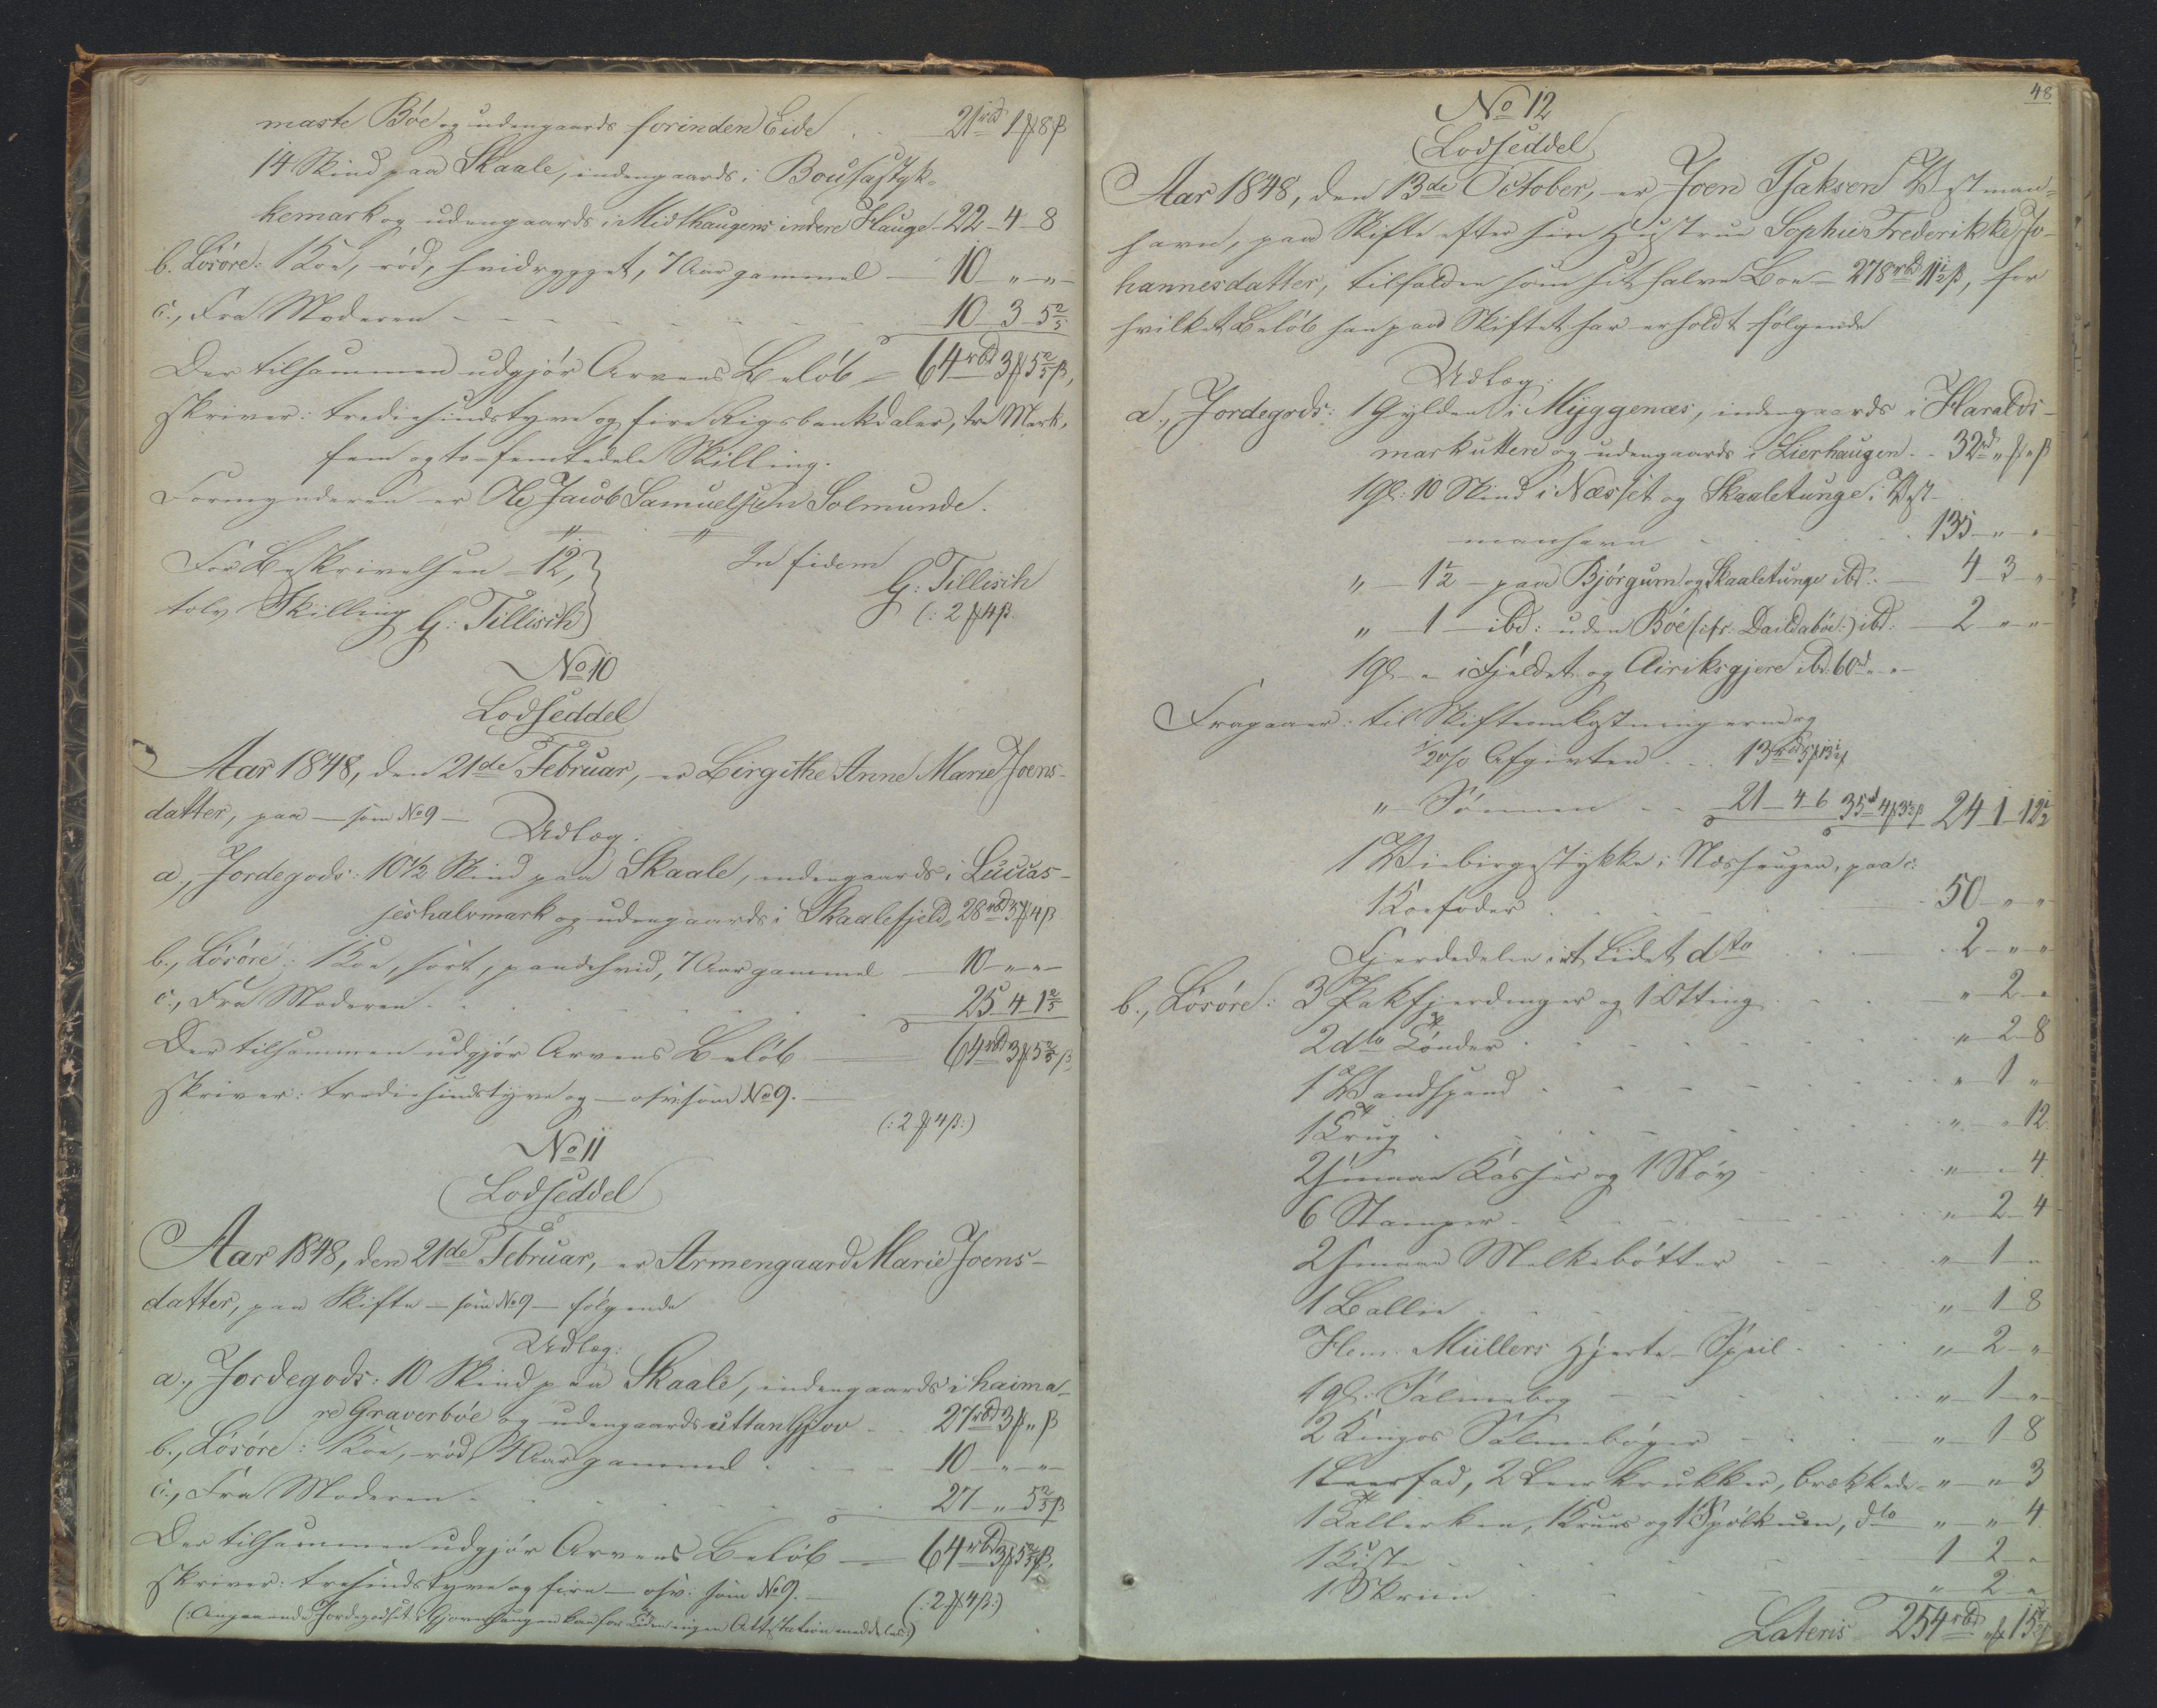 maste Böe og udengaards forinden Eide . . 21rbd 1ꝳ 8ß
14 Skind paa Skaale, indengaards i Bousastyk-
kemark og udengaards i Midthaugens indere Hauge - 22 - 4 - 8
b. Lösöre: 1 Koe, röd, hvidrygget, 7 Aar gammel - 10 - " - " -
c., Fra Moderen - - - - - - 10 - 3 - 5 2/5
Der tilsammen udgjör Arvens Belöb = 64rbd 3ꝳ 5 2/5ß,
skriver: trediesindstyve og fire Rigsbankdaler, tre Mark,
fem og to-femtedele Skilling.
Formynderen er Ole Jacob Samuelsen Solmunde.
For Beskrivelsen - 12,
tolv Skilling G: Tillisch
In fidem
G: Tillisch
(: 2ꝳ 4ß.
No 10
Lodseddel
Aar 1848, den 21de Februar, er Birgithe Anne Marie Joens-
datter, paa - som No 9 -
Udlæg:
a., Jordegods: 10 1/2 Skind paa Skaale, indengaards i Lucias-
jeshalvmark og udengaards i Skaalefjeld, 28rbd 3ꝳ 4ß
b., Lösöre: 1 Koe, sort, pandehvid, 7 Aar gammel - 10 - " - " -
c., Fra Moderen - - - - - 25 - 4 - 1 2/5
Der tilsammen udgjör Arvens Belöb - 64rbd 3ꝳ 5 2/5ß,
skriver: trediesindstyve og - osv. som No 9. -
(: 2ꝳ 4ß:)
No 11
Lodseddel
Aar 1848, den 21de Februar, er Armengaard Marie Joens-
datter, paa Skifte - som No 9 - fölgende
Udlæg:
a., Jordegods: 10 Skind paa Skaale, indengaards i haima-
re Graverböe og udengaards uttan Gjov . . 27rbd 3ꝳ " ß
b., Lösöre: 1 Koe, röd, 4 Aar gammel . - - 10 - " - " -
c., Fra Moderen - - - - - 27 - " - 5 2/5ß
Der tilsammen udgjör Arvens Belöb - 64rbd 3ꝳ 5 2/5ß,
skriver: tresindstyve og fire - osv. som No 9. -
(: 2ꝳ 4ß:)
(: Angaaende Jordegodset i Gjovenhaugen kan for Tiden ingen Attestation meddeles:)
48
No 12
Lodseddel
Aar 1848, den 13de October, er Joen Isaksen Vestman-
havn, paa Skifte efter sin Hustrue Sophie Frederikke Jo-
hannesdatter, tilfalden som sit halve Boe - 278rbd 11 1/2ß, for
hvilket Belöb han paa Skiftet har erholdt fölgende
Udlæg:
a., Jordegods: 1 Gylden i Myggenæs, indengaards i Haralds-
mark uttere og udengaards i Lierhaugen . . 32rbd " ꝳ " ß
1 Gl: 10 Skind i Næsset og Skaaletunge i Vest-
manhavn . . . . . 135 - " - "
" - 1 1/2 - paa Björgum og Skaaletunge ibd: - 4 - 3 - "
" - 1 - ibd: uden Böe (: ifr. Daildaböe:) ibd: - 2 - " - "
1 Gl - " i Fjeldet og Airiksgjere ibd. 60d " - "
Fragaaer: til Skifteomkostningerne og
1/2 0/0 Afgivten . . . 13rbd 5ꝳ 13 1/2ß
" Sönnen - - 21 - 4 - 6 35d 4ꝳ 3 1/2ß 24 - 1 - 12 1/2
1 Viebirgestykke i Næshaugen, paa c:
1 Koefoder . . . . 50 - " - "
Fjerdedelen i et Lidet dto . . . 2 - " - "
b., Lösöre: 3 Pakfjerdinger og 1 Otting . . . " - 2 - "
2 dto Tönder . . . . " - 2 - 8
1 Vandspand . . . . " - 1 - "
1 Trug . . . . " - " - 12
2 smaae Kasser og 1 Növ . . . " - " - 4
6 Stamper . . . . " - 2 - 4
2 smaae Melkebötter . . . " - 1 - "
1 Ballie . . . . " - 1 - 8
Hem: Müllers Hjerte-Speil . . . " - 2 - "
1 gl. Salmebog . . . " - 1 - "
2 Kingos Salmebøger . . . " - 1 - 8
1 Leerfad, 2 Leerkrukker, brækkede - " - " - 3
1 Tallerken, 1 Kruus og 1 Spölkum, dto " - " - 4
1 Kiste . . . . 1 - 2 - "
1 Skriin . . . . " - 2 - "
Lateris 254rbd " ꝳ 15 1/2ß